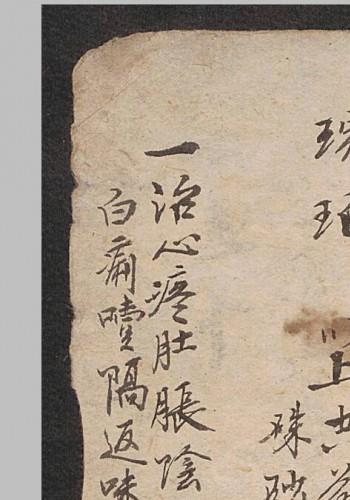 上共
硃砂
一治心疼肚脹陰
白痢噎隔返味